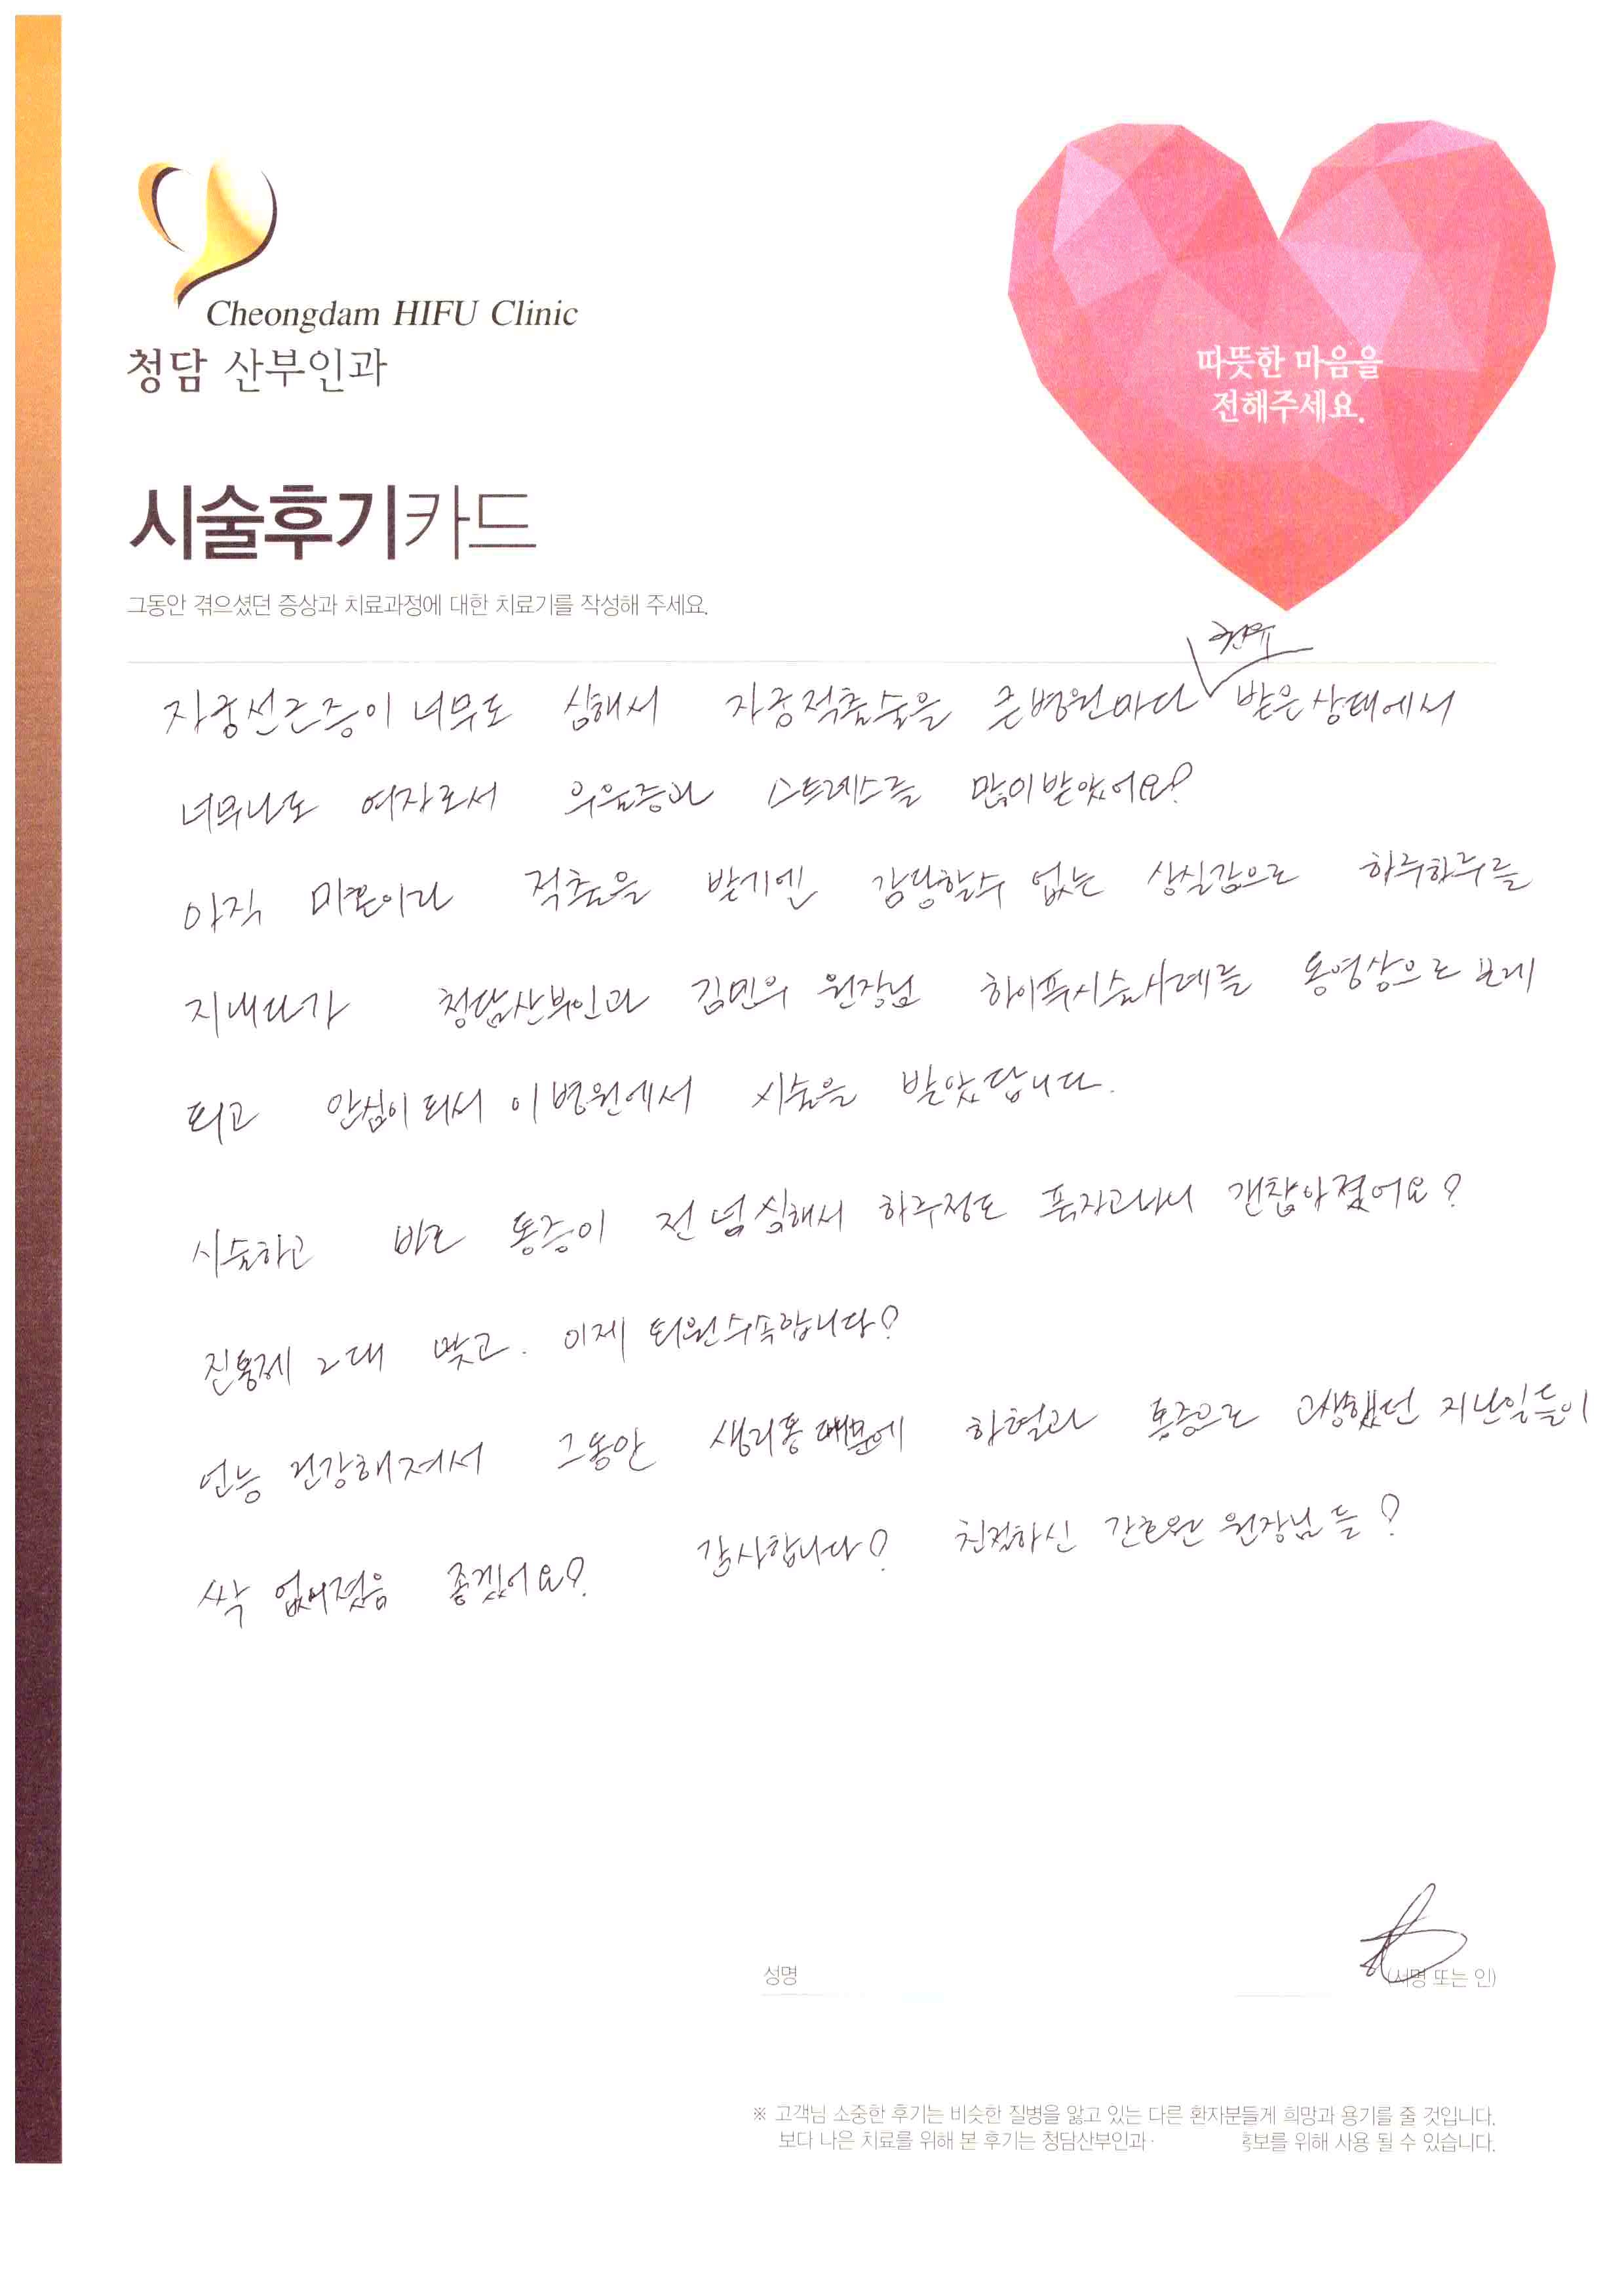 Cheongdam HIFU Clinic
청담 산부인과
따뜻한 마음을
전해주세요.
시술후기카드
그동안 겪으셨던 증상과 치료과정에 대한 치료기를 작성해 주세요.
권유
자궁선근증이 너무도 심해서 자궁적출술을 큰병원마다 받은상태에서
너무나도 여자로서 우울증과 스트레스를 많이받았어요?
아직 미혼이라 적출을 받기엔 감당할수 없는 상실감으로 하루하루를
지내다가 청담산부인과 김민우 원장님 하이푸시술사례를 동영상으로 보게
되고 안심이되서 이병원에서 시술을 받았답니다.
시술하고 바로 통증이 전 넘 심해서 하루정도 푹자고나니 갠찮아졌어요?
진통제 2대 맞고. 이제 퇴원수속합니다?
언능 건강해져서 그동안 생리통때문에 하혈과 통증으로 고생했던 지난일들이
싹 없어졌음 좋겠어요? 감사합니다? 친절하신 간호원 원장님들?
성명 (서명 또는 인)
※ 고객님 소중한 후기는 비슷한 질병을 앓고 있는 다른 환자분들게 희망과 용기를 줄 것입니다.
보다 나은 치료를 위해 본 후기는 청담산부인과 홍보를 위해 사용 될 수 있습니다.